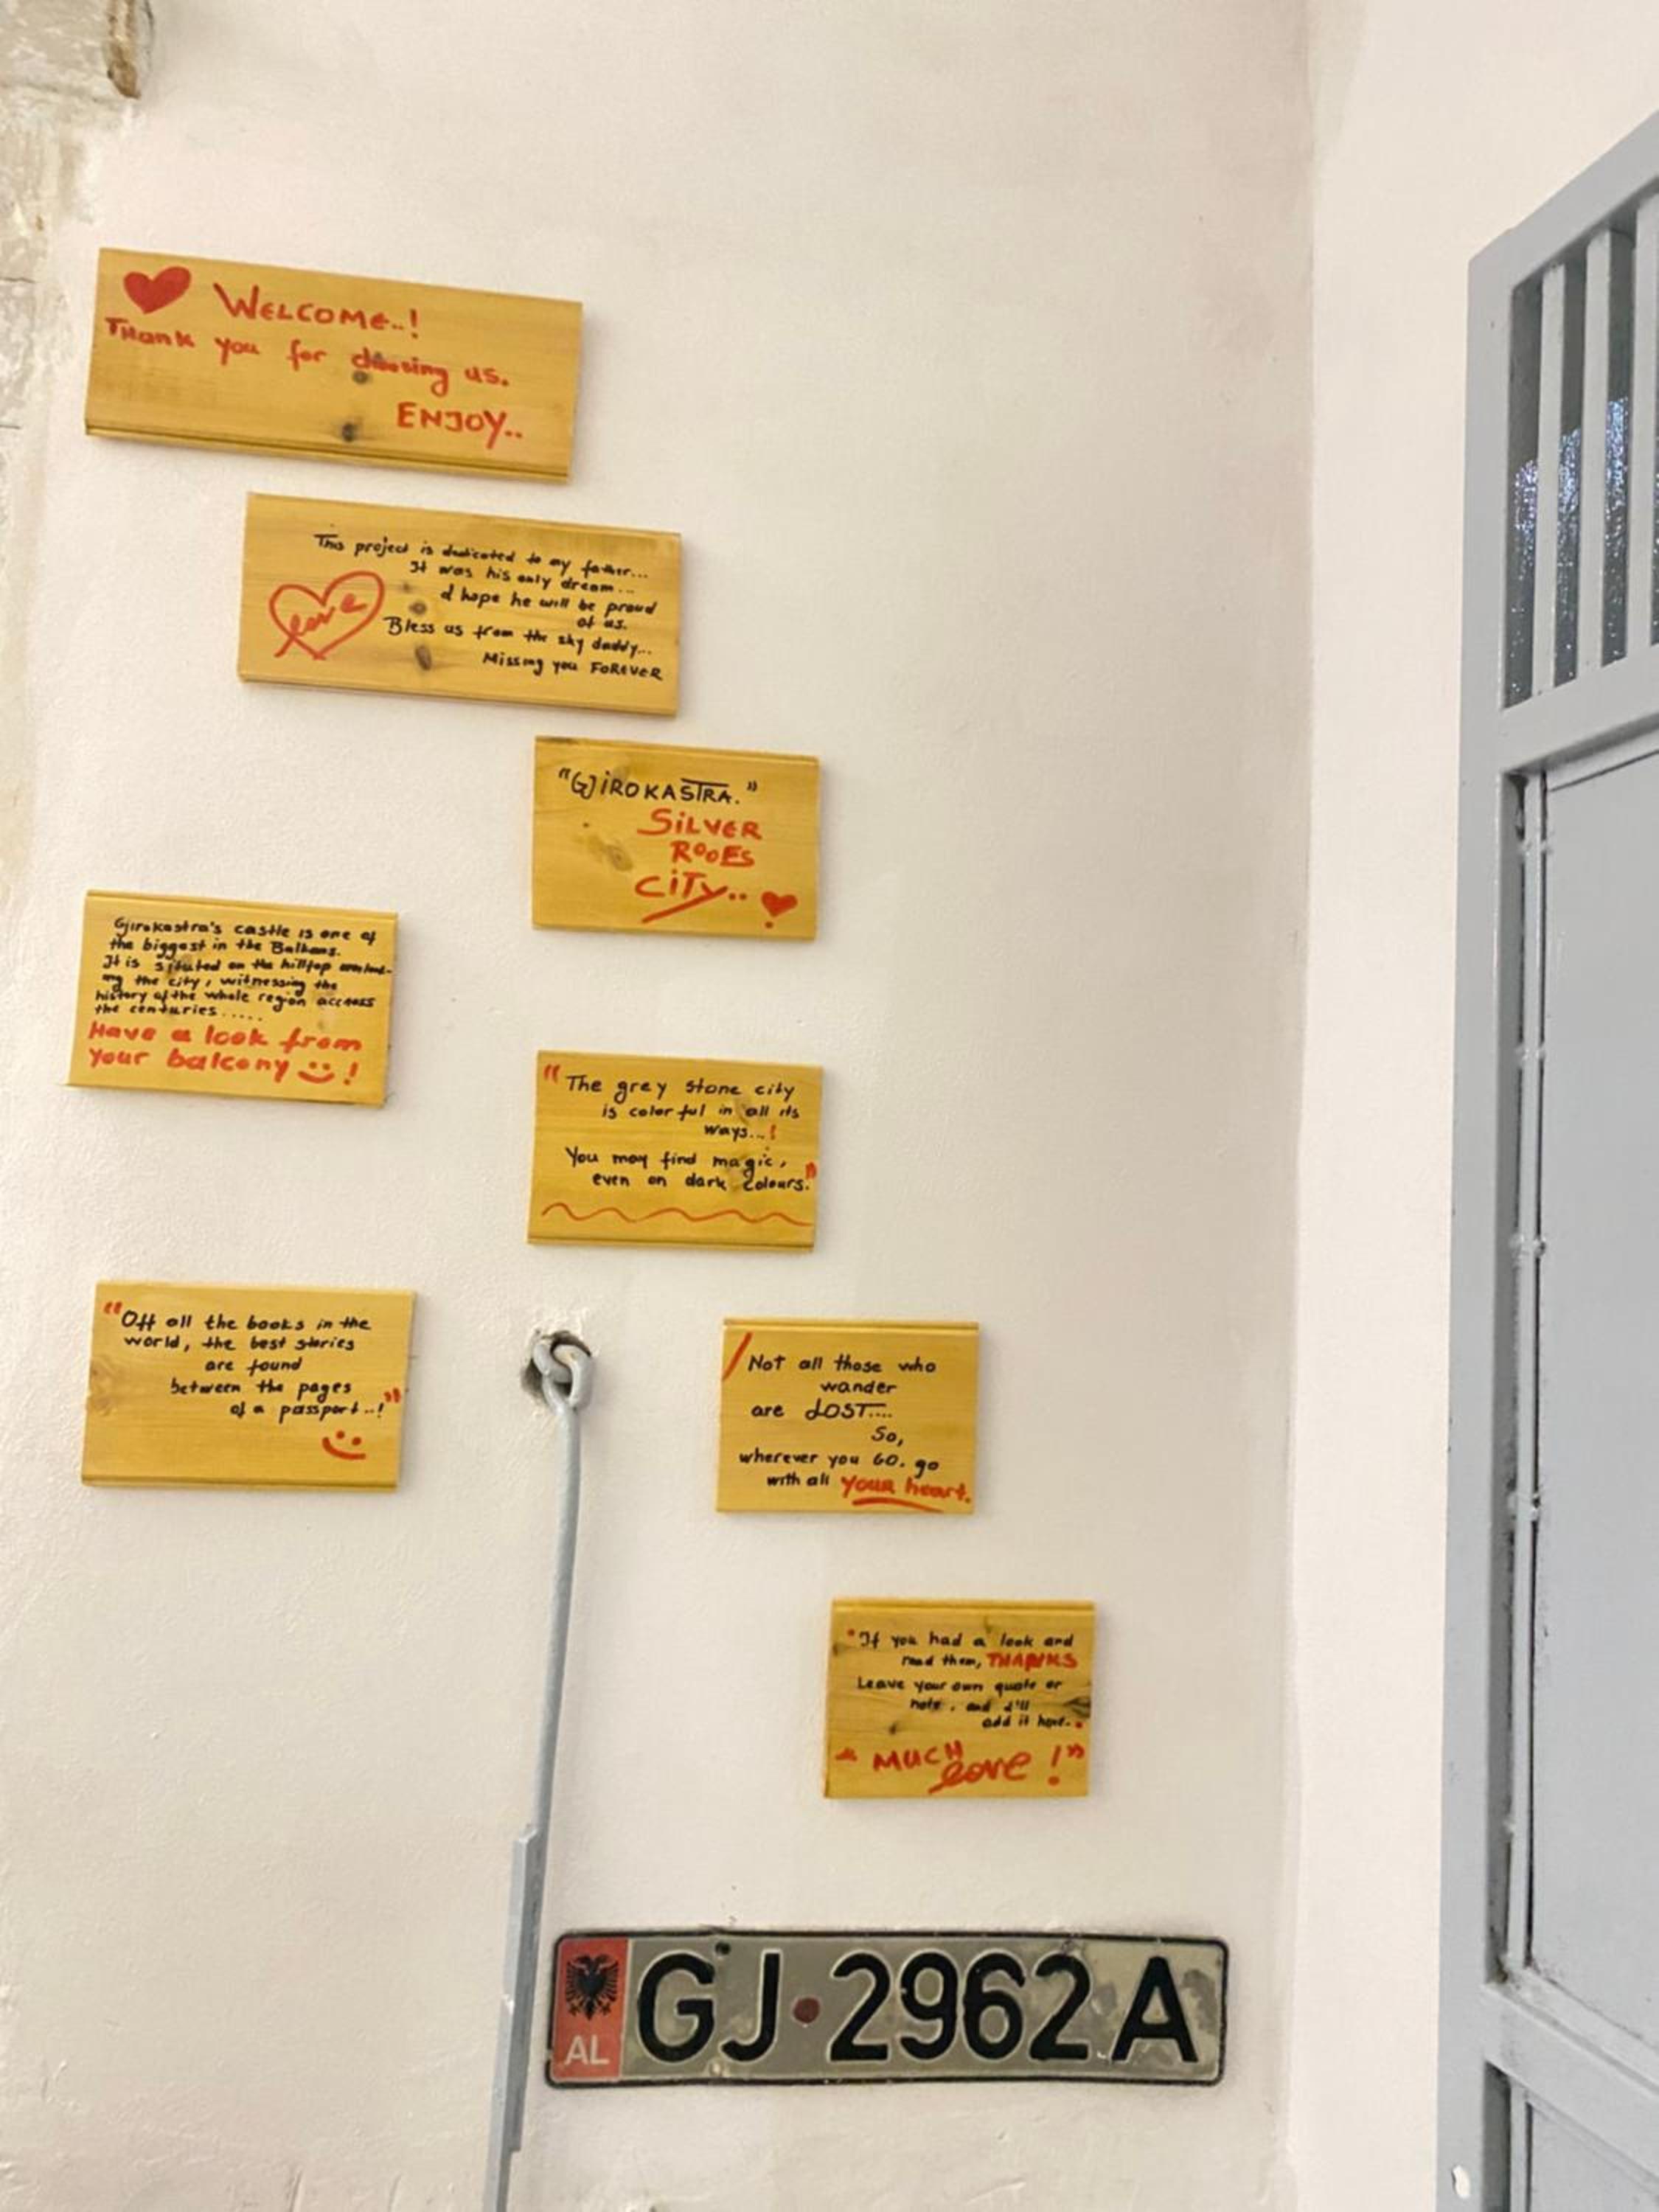 WELCOME..!
Thank you for choosing us.
ENJOY..
This project is dedicated to my father...
It was his only dream...
I hope he will be proud
of us.
Bless us from the sky daddy...
Missing you FOREVER
love
"GJIROKASTRA."
SILVER
ROOFS
CITY..
Gjirokastra's castle is one of
the biggest in the Balkans.
It is situted on the hilltop
the city, witnessing the
history of the whole region accross
the centuries.....
Have a look from
your balcony !
"The grey stone city
is colorful in all its
ways...!
You may find magic,
even on dark colours."
"Off all the books in the
world, the best stories
are found
between the pages
of a passport..!"
Not all those who
wander
are LOST....
So,
wherever you GO. go
with all your heart.
"If you had a look and
read them, THANKS
Leave your own quote or
note, and I'll
add it here.."
"MUCH
love!"
AL GJ·2962A